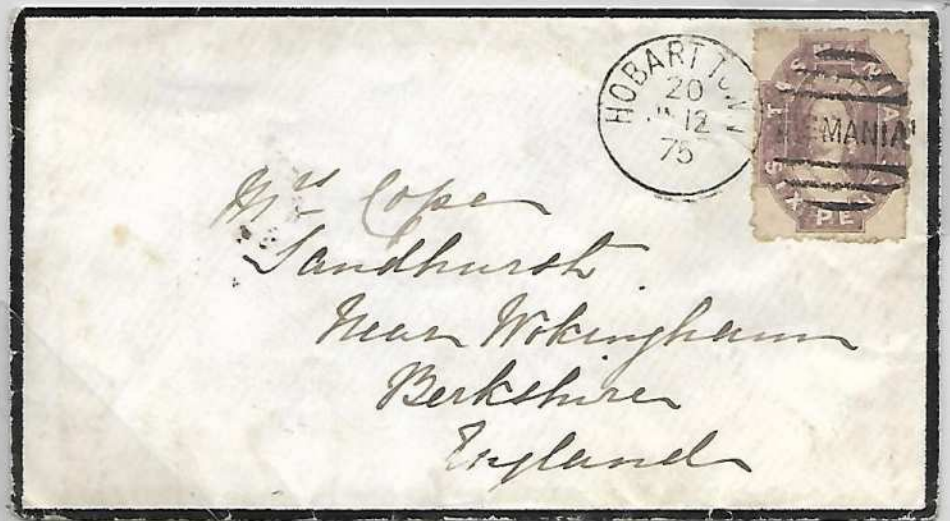 HOBART TOWN
20
12
75
TASMANIA
SIX PE
Mrs Cope
Sandhurst
Near Wokingham
Berkshire
England